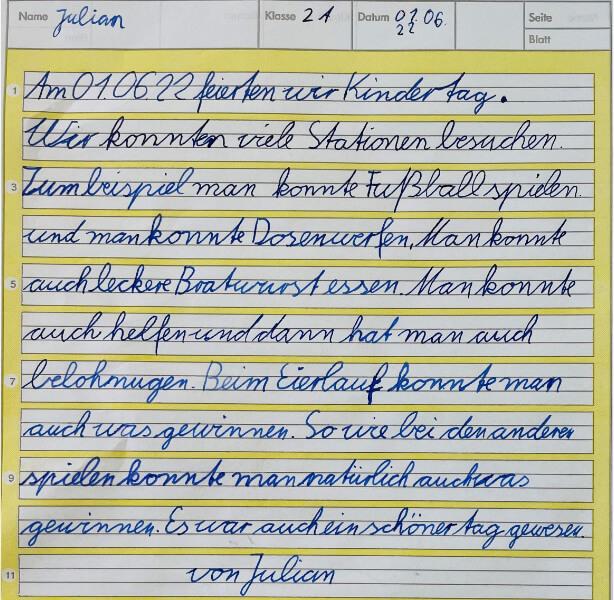 Name Julian Klasse 2A Datum 01.06. 22 Seite
Blatt
1 Am 01.06.22 feierten wir Kindertag.
Wir konnten viele Stationen besuchen.
3 Zum beispiel man konnte Fußball spielen.
und man konnte Dosenwerfen. Man konnte
5 auch leckere Bratwurst essen. Man konnte
auch helfen und dann hat man auch
7 belohnugen. Beim Eierlauf konnte man
auch was gewinnen. So wie bei den anderen
9 spielen konnte man natürlich auch was
gewinnen. Es war auch ein schöner tag gewesen.
11 von Julian